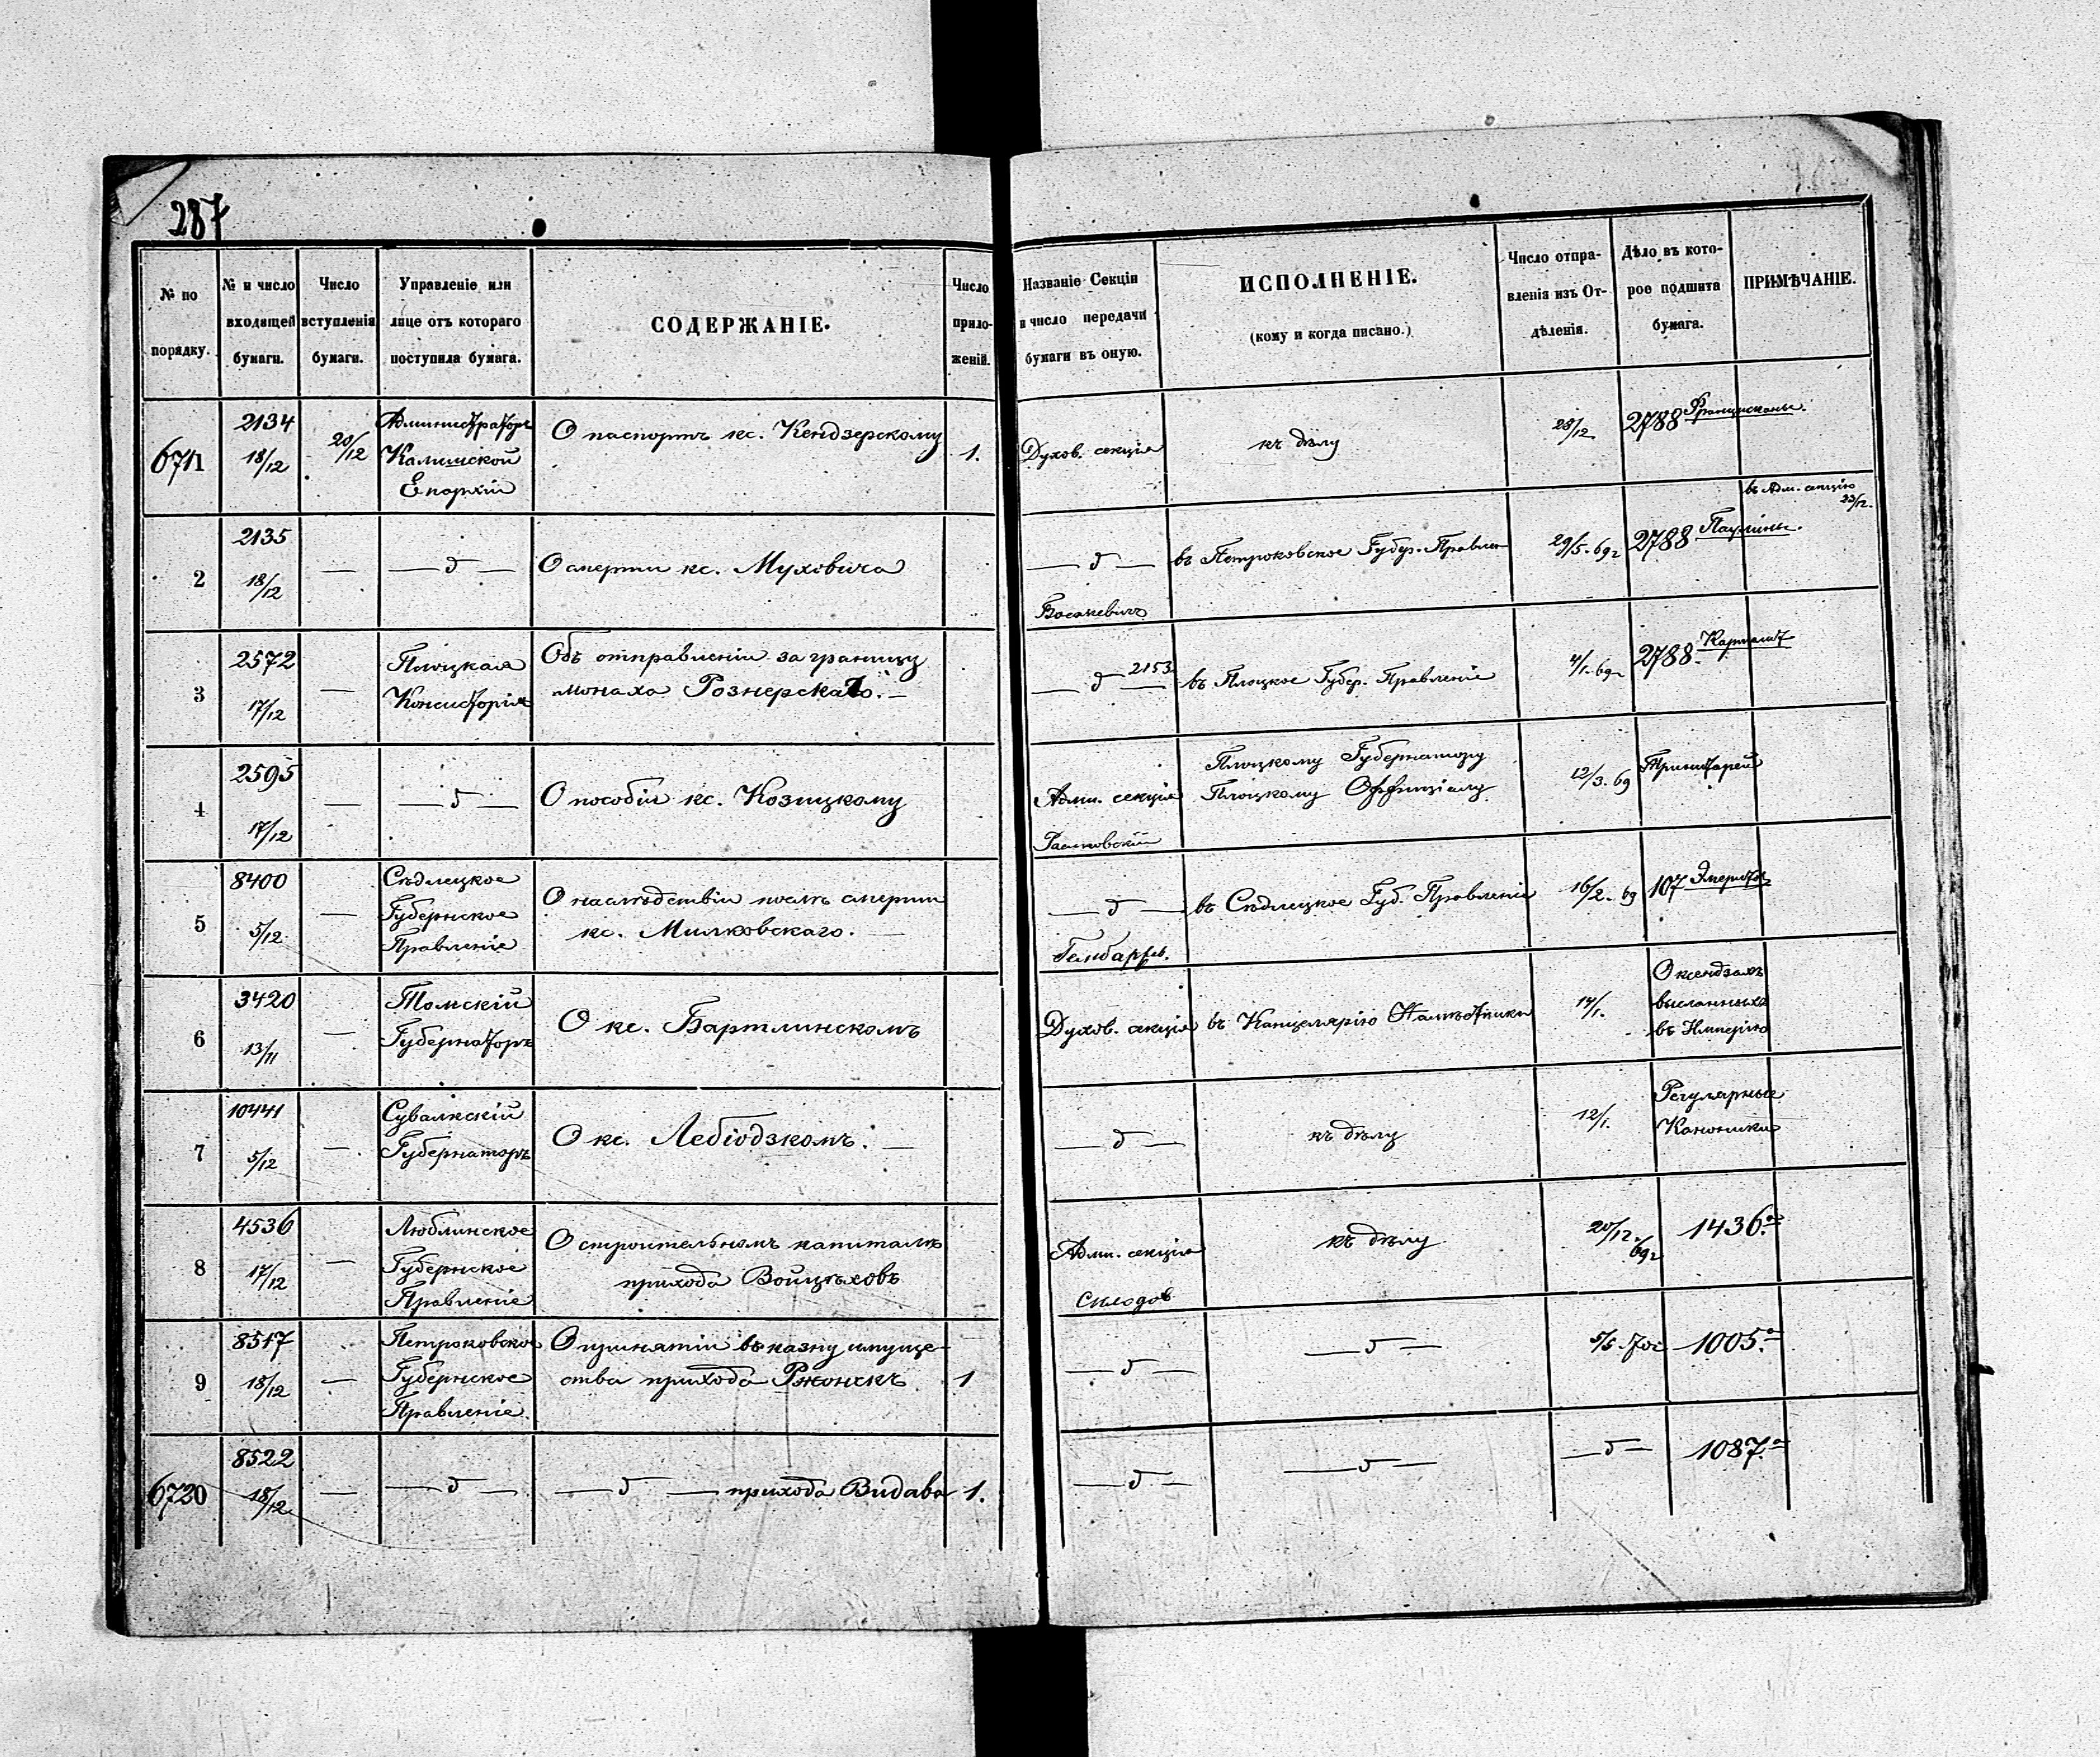 287
№ по
порядку.
№ и число
входящей
бумаги.
Число
вступленія
бумаги.
Управленіе или
лице отъ котораго
поступила бумага.
СОДЕРЖАНІЕ.
Число
прило-
женій.
6711
2134
18/12
20/12
Администраторъ
Калишской
Епархіи
О паспортѣ кс. Кендзерскому
1.
2
2135
18/12
— д —
О смерти кс. Муховича
3
2572
17/12
Плоцкая
Консисторія
Объ отправленіи за границу
монаха Рознерскаго. —
4
2595
17/12
— д —
О пособіи кс. Козицкому
5
8400
5/12
Сѣдлецкое
Губернское
Правленіе
О наслѣдствіи послѣ смерти
кс. Милковскаго. —
6
3420
13/11
Томскій
Губернаторъ
О кс. Бартлинскомъ
7
10441
5/12
Сувалкскій
Губернаторъ
О кс. Лебіодзкомъ. —
8
4536
17/12
Люблинское
Губернское
Правленіе
О строительномъ капиталѣ
прихода Войцѣховъ
9
8517
18/12
Петроковское
Губернское
Правленіе
О принятіи въ казну имуще-
ства прихода
1
6720
8522
18/12
— д —
— д — прихода Видава
1.
Названіе Секціи
и число передачи
бумаги въ оную.
ИСПОЛНЕНІЕ.
(кому и когда писано.)
Число отпра-
вленія изъ От-
дѣленія.
Дѣло въ кото-
рое подшита
бумага.
ПРИМѢЧАНІЕ.
Духов. секція
къ дѣлу
28/12
2788 Францисканы.
— д —
въ Петроковское Губер. Правлен
29/5. 69г
2788 Паулины.
въ Адм. секцію
23/12.
Босакевичъ
— д — 2153
въ Плоцкое Губер. Правленіе
4/1. 69г
2788. Кармелит
Адми. секція
Плоцкому Губернатору
Плоцкому Оффиціалу
12/3. 69
Тринитарей
— д —
въ Сѣдлецкое Губ. Правленіе
16/2. 69
107
Духов. секція
въ Канцелярію Намѣстника
14/1.
О ксендзахъ
высланныхъ
въ Имперію
— д —
къ дѣлу
12/1.
Регулярные
Каноники
Адми. секція
къ дѣлу
20/12.
69г
1436.
— д —
— д —
1005.
— д —
— д —
— д —
1087.